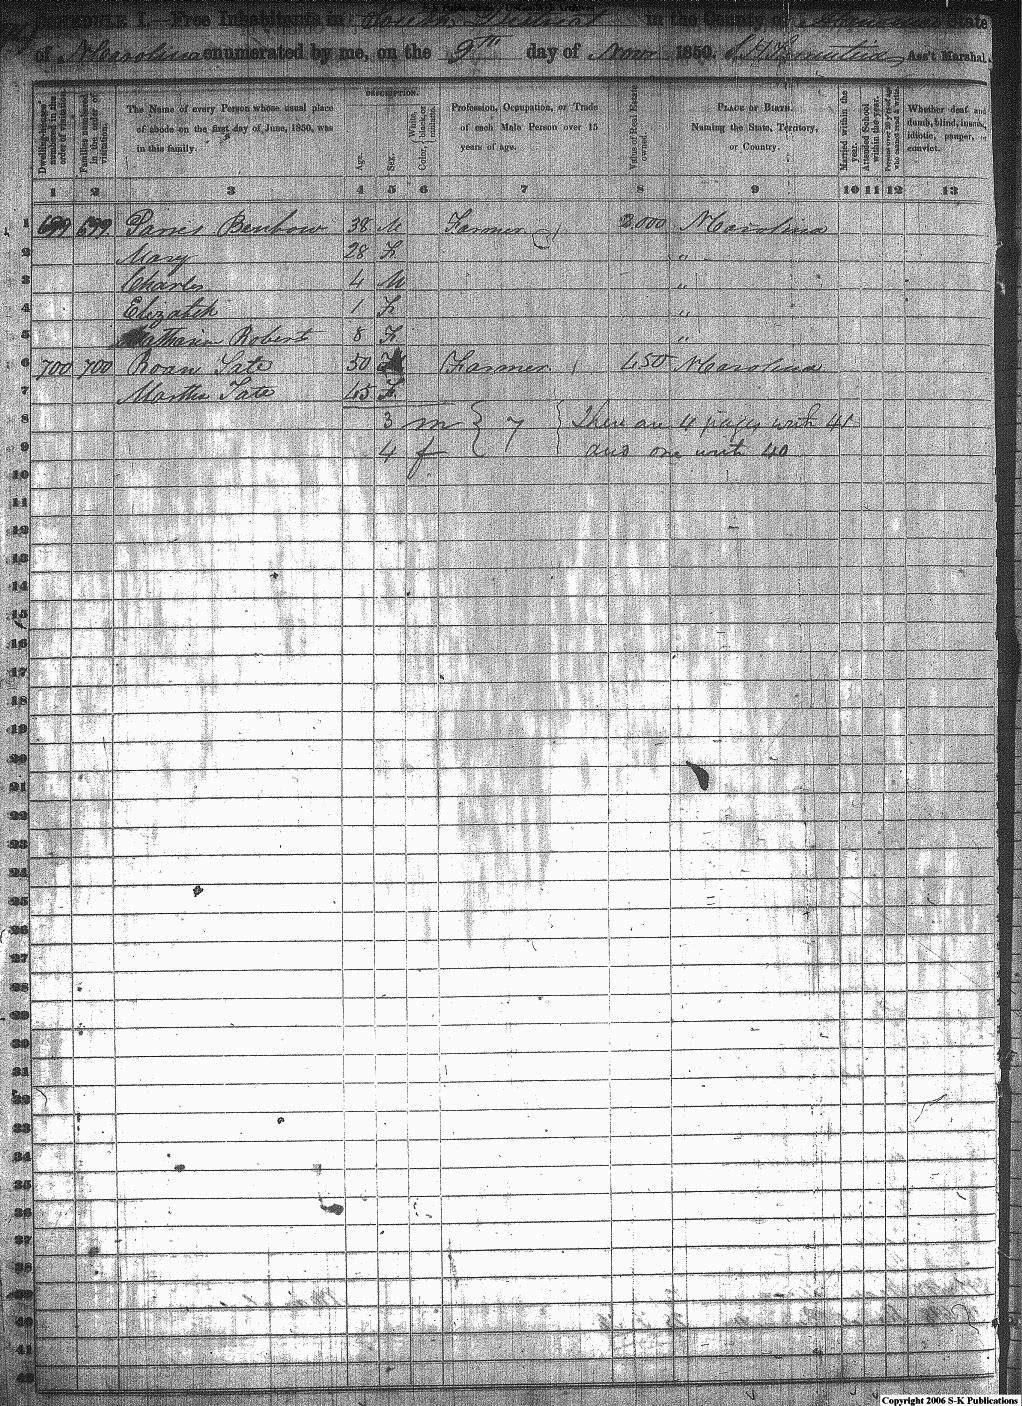 SCHEDULE I.—Free Inhabitants in South District in the County of State
of N Carolina enumerated by me, on the 9th day of Nov 1850. Ass't Marshal.
Dwelling-houses numbered in the order of visitation.
Families numbered in the order of visitation.
The Name of every Person whose usual place of abode on the first day of June, 1850, was in this family.
DESCRIPTION.
Age.
Sex.
Color, { White, black, or mulatto.
Profession, Occupation, or Trade of each Male Person over 15 years of age.
Value of Real Estate owned.
PLACE OF BIRTH. Naming the State, Territory, or Country.
Married within the year.
Attended School within the year.
Persons over 20 y'rs of age who cannot read & write.
Whether deaf and dumb, blind, insane, idiotic, pauper, or convict.
1 2 3 4 5 6 7 8 9 10 11 12 13
1 699 699 Benbow 38 M Farmer 2000 N Carolina
2 Mary 28 F "
3 Charles 4 M "
4 Elizabeth 1 F "
5 Roberts 8 F "
6 700 700 Roan Tate 50 Farmer 450 N Carolina
7 Martha Tate 45 F
8 3 m } 7 { There are 4 pages with 41
9 4 f and one with 40
10
11
12
13
14
15
16
17
18
19
20
21
22
23
24
25
26
27
28
29
30
31
32
33
34
35
36
37
38
39
40
41
42
Copyright 2006 S-K Publications